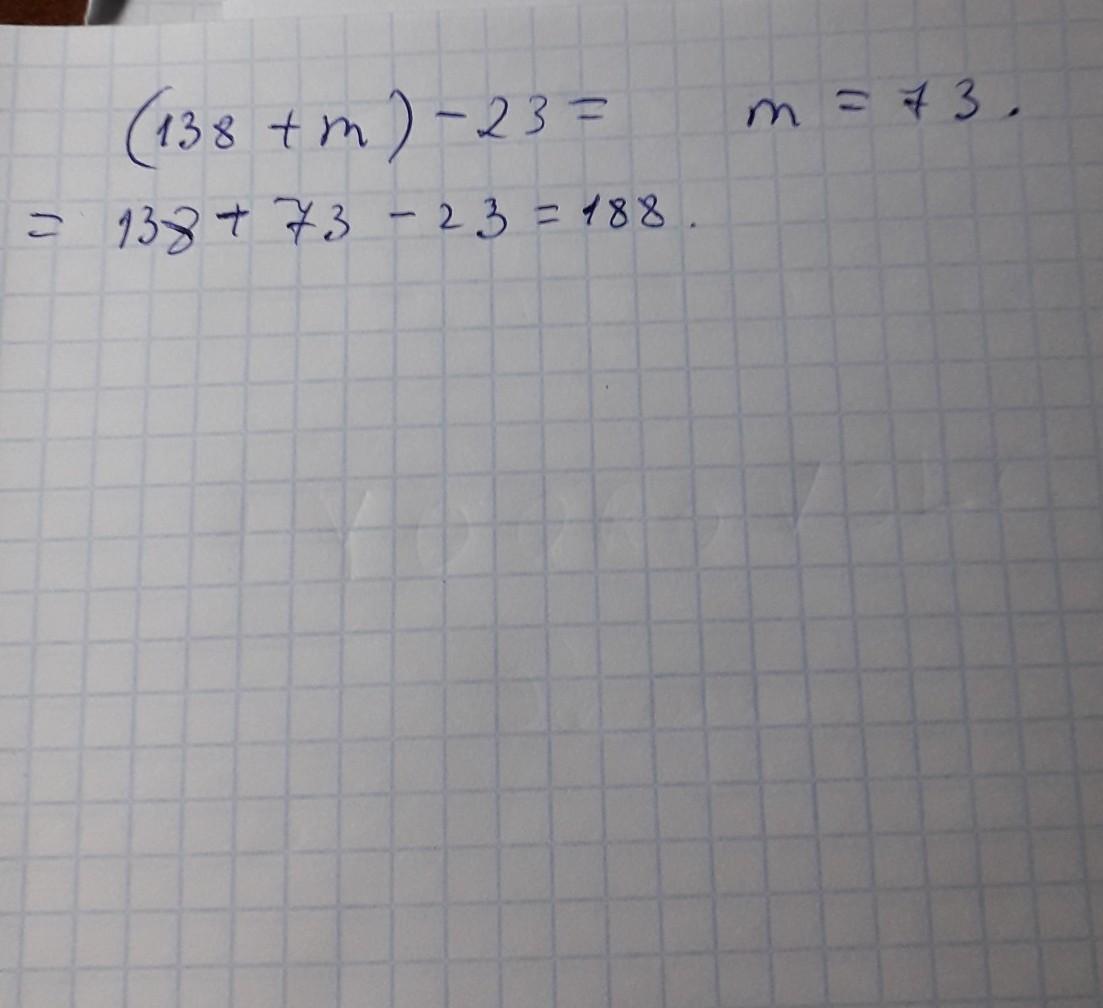 (138 + m) - 23 = m = 73.
= 138 + 73 - 23 = 188.